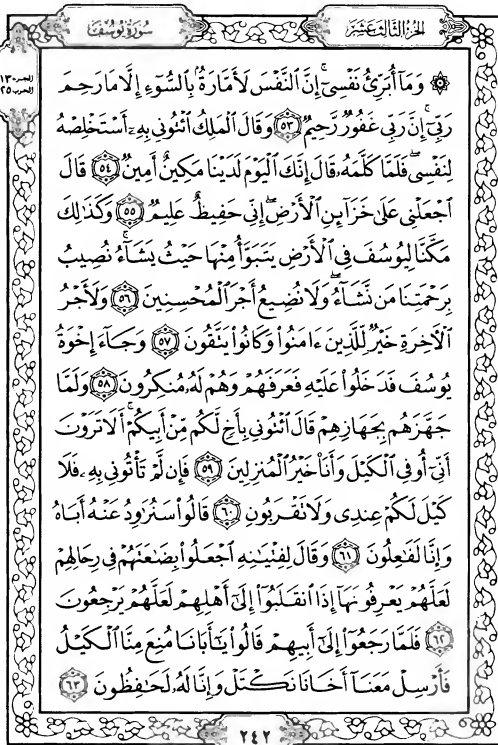 الجزء الثالث عشر
سورة يوسف
الجزء ١٣
الحزب ٢٥
۞ وَمَآ أُبَرِّئُ نَفْسِىٓ ۚ إِنَّ ٱلنَّفْسَ لَأَمَّارَةٌۢ بِٱلسُّوٓءِ إِلَّا مَا رَحِمَ
رَبِّىٓ ۚ إِنَّ رَبِّى غَفُورٌ رَّحِيمٌ ﴿٥٣﴾ وَقَالَ ٱلْمَلِكُ ٱئْتُونِى بِهِۦٓ أَسْتَخْلِصْهُ
لِنَفْسِى ۖ فَلَمَّا كَلَّمَهُۥ قَالَ إِنَّكَ ٱلْيَوْمَ لَدَيْنَا مَكِينٌ أَمِينٌ ﴿٥٤﴾ قَالَ
ٱجْعَلْنِى عَلَىٰ خَزَآئِنِ ٱلْأَرْضِ ۖ إِنِّى حَفِيظٌ عَلِيمٌ ﴿٥٥﴾ وَكَذَٰلِكَ
مَكَّنَّا لِيُوسُفَ فِى ٱلْأَرْضِ يَتَبَوَّأُ مِنْهَا حَيْثُ يَشَآءُ ۚ نُصِيبُ
بِرَحْمَتِنَا مَن نَّشَآءُ ۖ وَلَا نُضِيعُ أَجْرَ ٱلْمُحْسِنِينَ ﴿٥٦﴾ وَلَأَجْرُ
ٱلْءَاخِرَةِ خَيْرٌ لِّلَّذِينَ ءَامَنُوا۟ وَكَانُوا۟ يَتَّقُونَ ﴿٥٧﴾ وَجَآءَ إِخْوَةُ
يُوسُفَ فَدَخَلُوا۟ عَلَيْهِ فَعَرَفَهُمْ وَهُمْ لَهُۥ مُنكِرُونَ ﴿٥٨﴾ وَلَمَّا
جَهَّزَهُم بِجَهَازِهِمْ قَالَ ٱئْتُونِى بِأَخٍ لَّكُم مِّنْ أَبِيكُمْ ۚ أَلَا تَرَوْنَ
أَنِّىٓ أُوفِى ٱلْكَيْلَ وَأَنَا۠ خَيْرُ ٱلْمُنزِلِينَ ﴿٥٩﴾ فَإِن لَّمْ تَأْتُونِى بِهِۦ فَلَا
كَيْلَ لَكُمْ عِندِى وَلَا تَقْرَبُونِ ﴿٦٠﴾ قَالُوا۟ سَنُرَٰوِدُ عَنْهُ أَبَاهُ
وَإِنَّا لَفَٰعِلُونَ ﴿٦١﴾ وَقَالَ لِفِتْيَٰنِهِ ٱجْعَلُوا۟ بِضَٰعَتَهُمْ فِى رِحَالِهِمْ
لَعَلَّهُمْ يَعْرِفُونَهَآ إِذَا ٱنقَلَبُوٓا۟ إِلَىٰٓ أَهْلِهِمْ لَعَلَّهُمْ يَرْجِعُونَ
﴿٦٢﴾ فَلَمَّا رَجَعُوٓا۟ إِلَىٰٓ أَبِيهِمْ قَالُوا۟ يَٰٓأَبَانَا مُنِعَ مِنَّا ٱلْكَيْلُ
فَأَرْسِلْ مَعَنَآ أَخَانَا نَكْتَلْ وَإِنَّا لَهُۥ لَحَٰفِظُونَ ﴿٦٣﴾
٢٤٢